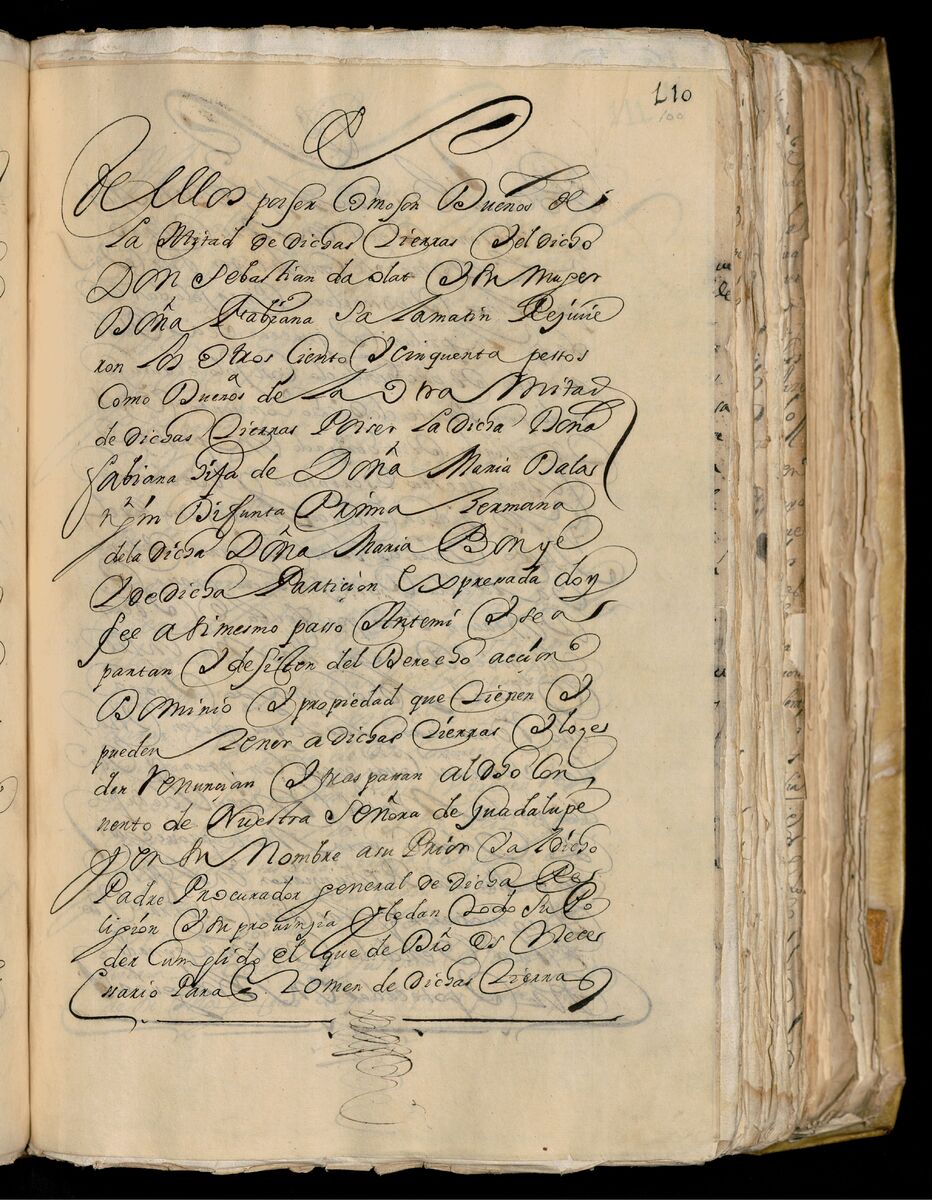 110
100
de ellos por ser Como son Dueños de
La Mitad de dichas tierras Y el dicho
DON Sebastian da Y su Muger
Doña Fabiana Salamatin Resivie
ron los Otros Ciento Y cinquenta pessos
Como Dueños de La Otra Mitad
de dichas tierras Por ser La dicha Doña
fabiana hija de Doña Maria Dala
Difunta Prima Hermana
de la dicha Doña Maria
Y de dicha Partición Expresada doy
fee asimesmo passo Antemi Y se a
partan Y desisten del Derecho acción
Dominio Y propiedad que tienen Y
pueden tener a dichas tierras Y lo ze
den Renunçian Y traspasan al Dho Con
vento de Nuestra Señora de Guadalupe
Y en su Nombre a su Prior Y al dicho
Padre Procurador general de dicha Re
ligión Y su provinçia Y le dan todo su Po
der Cumplido el que de Dro Es Neces
sario Para q tomen de dichas tierras